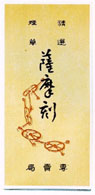 精選
煙草
薩摩刻
專賣局